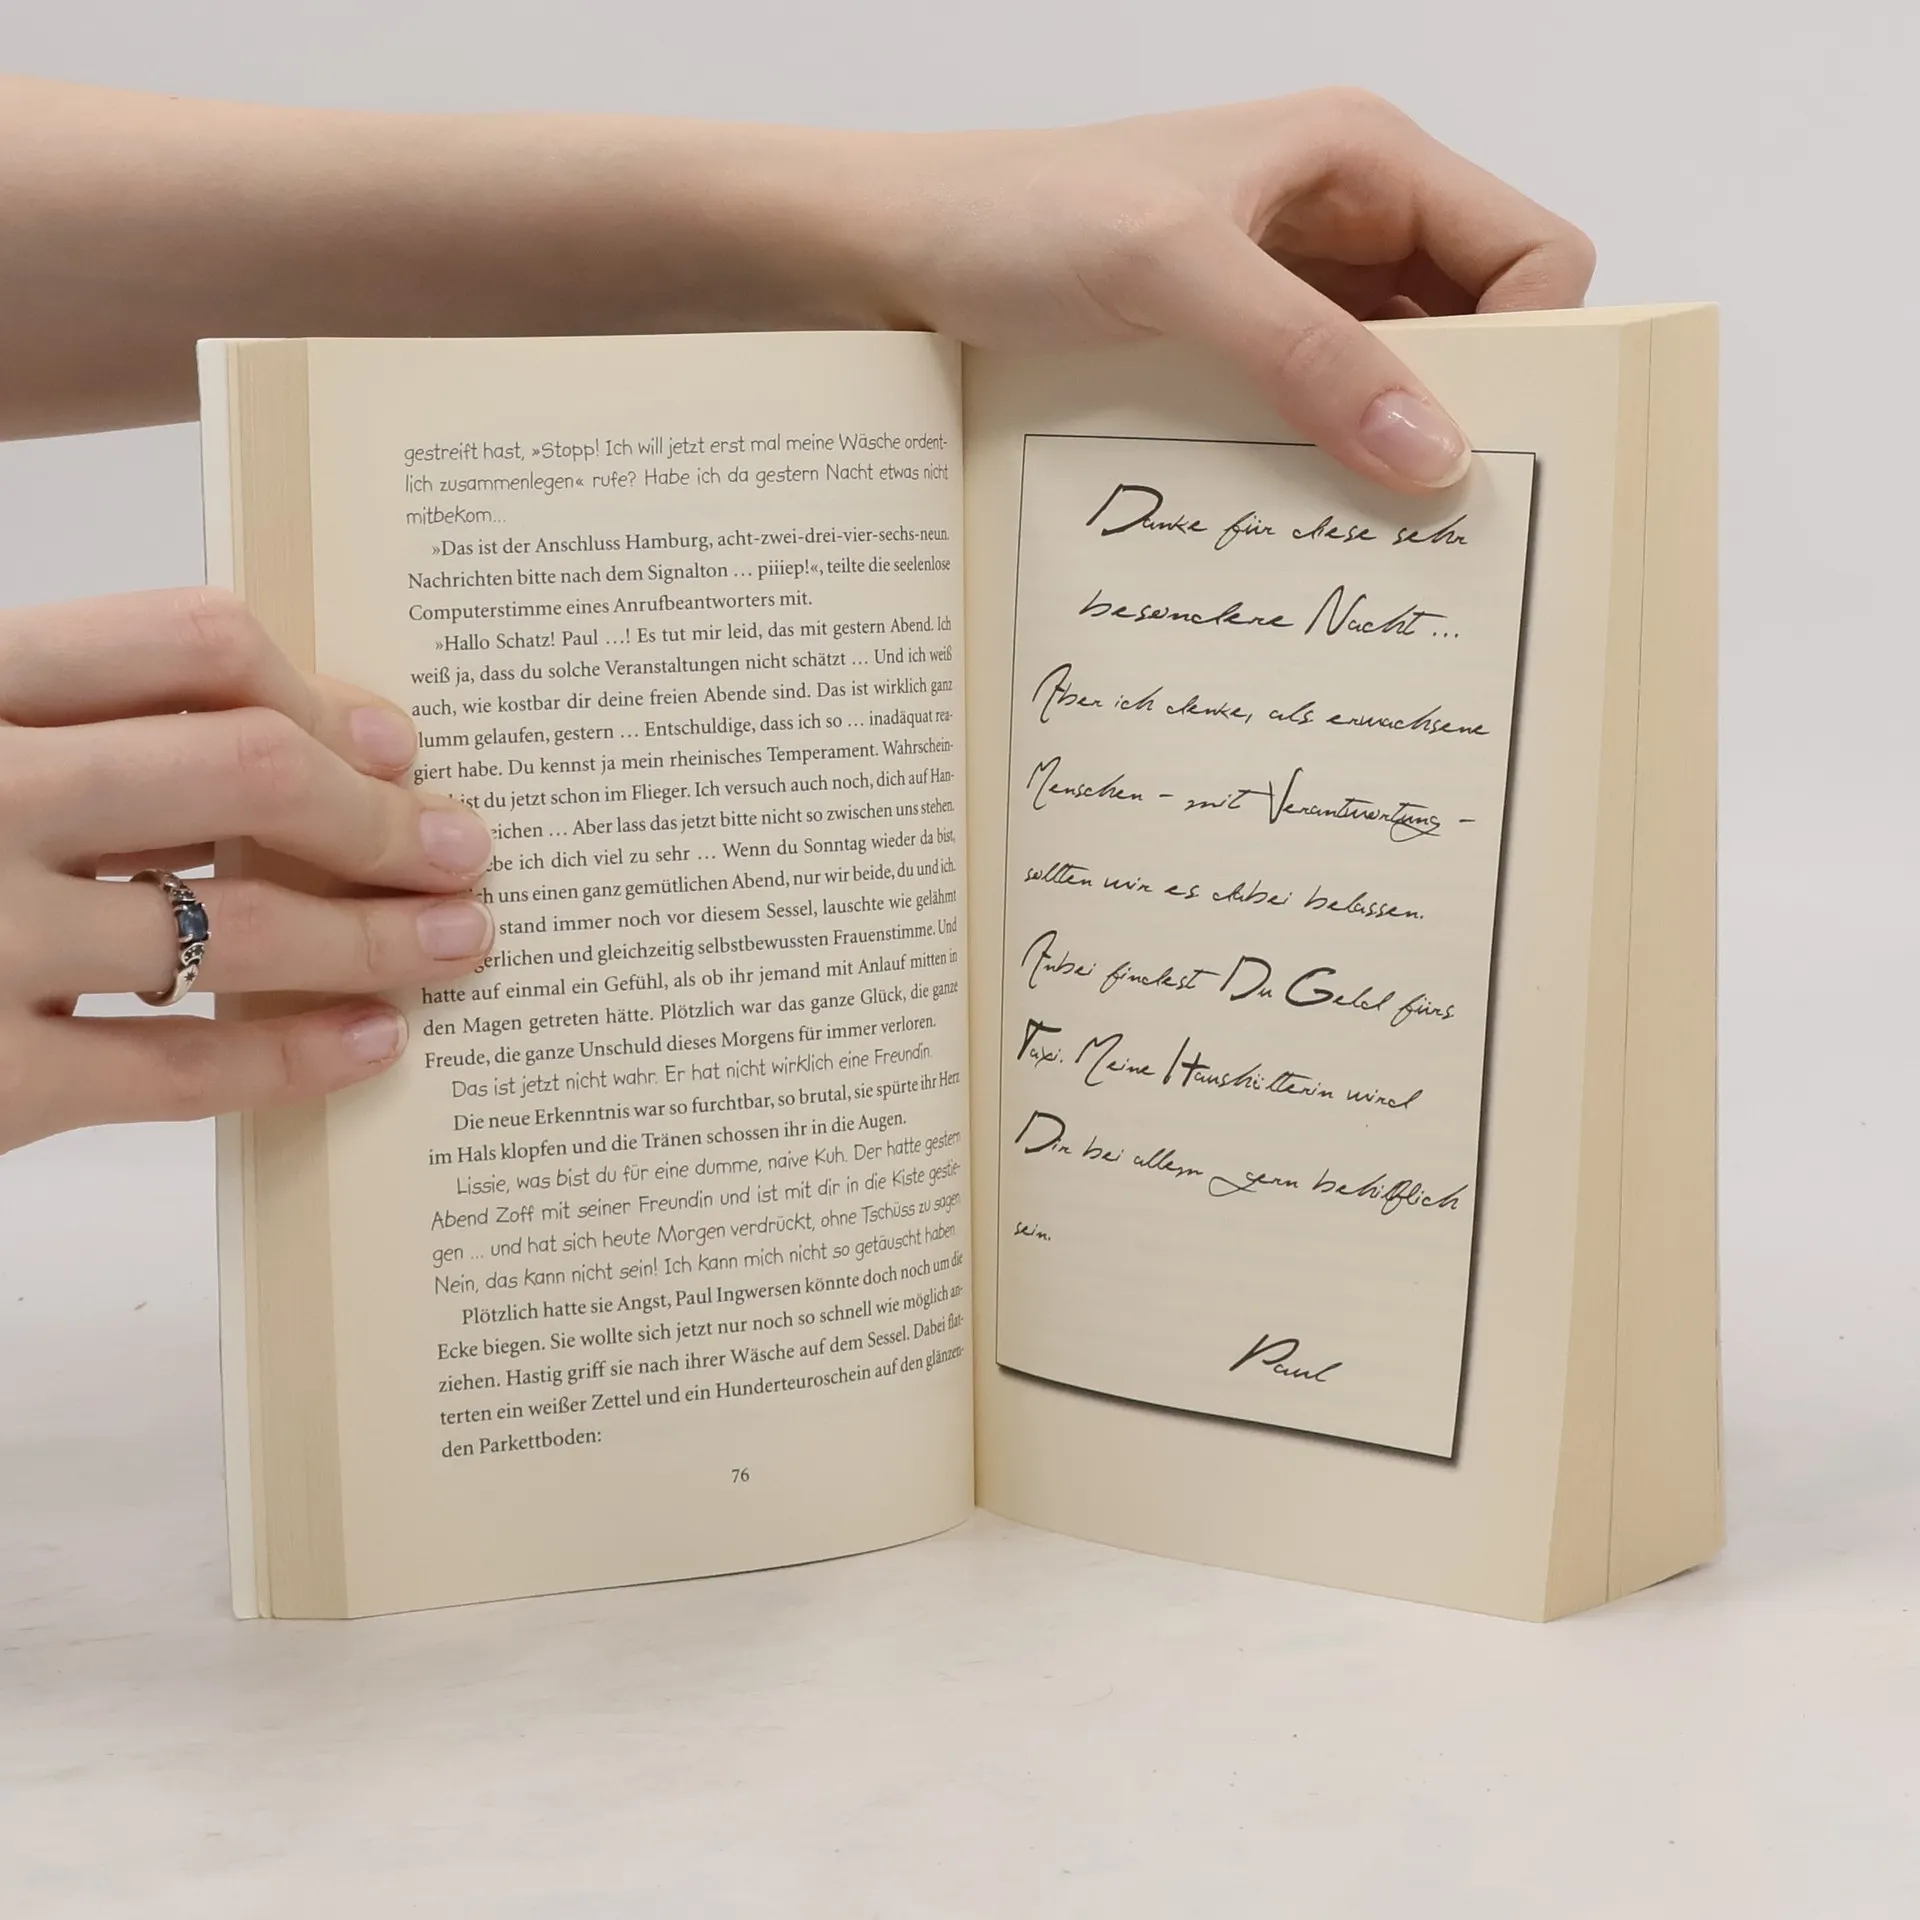 gestreift hast, »Stopp! Ich will jetzt erst mal meine Wäsche ordent-
lich zusammenlegen« rufe? Habe ich da gestern Nacht etwas nicht
mitbekom...
»Das ist der Anschluss Hamburg, acht-zwei-drei-vier-sechs-neun.
Nachrichten bitte nach dem Signalton … piiiep!«, teilte die seelenlose
Computerstimme eines Anrufbeantworters mit.
»Hallo Schatz! Paul …! Es tut mir leid, das mit gestern Abend. Ich
weiß ja, dass du solche Veranstaltungen nicht schätzt … Und ich weiß
auch, wie kostbar dir deine freien Abende sind. Das ist wirklich ganz
lumm gelaufen, gestern … Entschuldige, dass ich so … inadäquat rea-
giert habe. Du kennst ja mein rheinisches Temperament. Wahrschein-
ist du jetzt schon im Flieger. Ich versuch auch noch, dich auf Han-
eichen … Aber lass das jetzt bitte nicht so zwischen uns stehen.
ebe ich dich viel zu sehr … Wenn du Sonntag wieder da bist,
ch uns einen ganz gemütlichen Abend, nur wir beide, du und ich.
stand immer noch vor diesem Sessel, lauschte wie gelähmt
gerlichen und gleichzeitig selbstbewussten Frauenstimme. Und
hatte auf einmal ein Gefühl, als ob ihr jemand mit Anlauf mitten in
den Magen getreten hätte. Plötzlich war das ganze Glück, die ganze
Freude, die ganze Unschuld dieses Morgens für immer verloren.
Das ist jetzt nicht wahr. Er hat nicht wirklich eine Freundin.
Die neue Erkenntnis war so furchtbar, so brutal, sie spürte ihr Herz
im Hals klopfen und die Tränen schossen ihr in die Augen.
Lissie, was bist du für eine dumme, naive Kuh. Der hatte gestern
Abend Zoff mit seiner Freundin und ist mit dir in die Kiste gestie-
gen ... und hat sich heute Morgen verdrückt, ohne Tschüss zu sagen
Nein, das kann nicht sein! Ich kann mich nicht so getäuscht haben
Plötzlich hatte sie Angst, Paul Ingwersen könnte doch noch um die
Ecke biegen. Sie wollte sich jetzt nur noch so schnell wie möglich an-
ziehen. Hastig griff sie nach ihrer Wäsche auf dem Sessel. Dabei flat-
terten ein weißer Zettel und ein Hunderteuroschein auf den glänzen-
den Parkettboden:
76
Danke für diese sehr
besondere Nacht ...
Aber ich denke, als erwachsene
Menschen – mit Verantwortung –
sollten wir es dabei belassen.
Anbei findest Du Geld fürs
Taxi. Meine Haushälterin wird
Dir bei allem gern behilflich
sein.
Paul